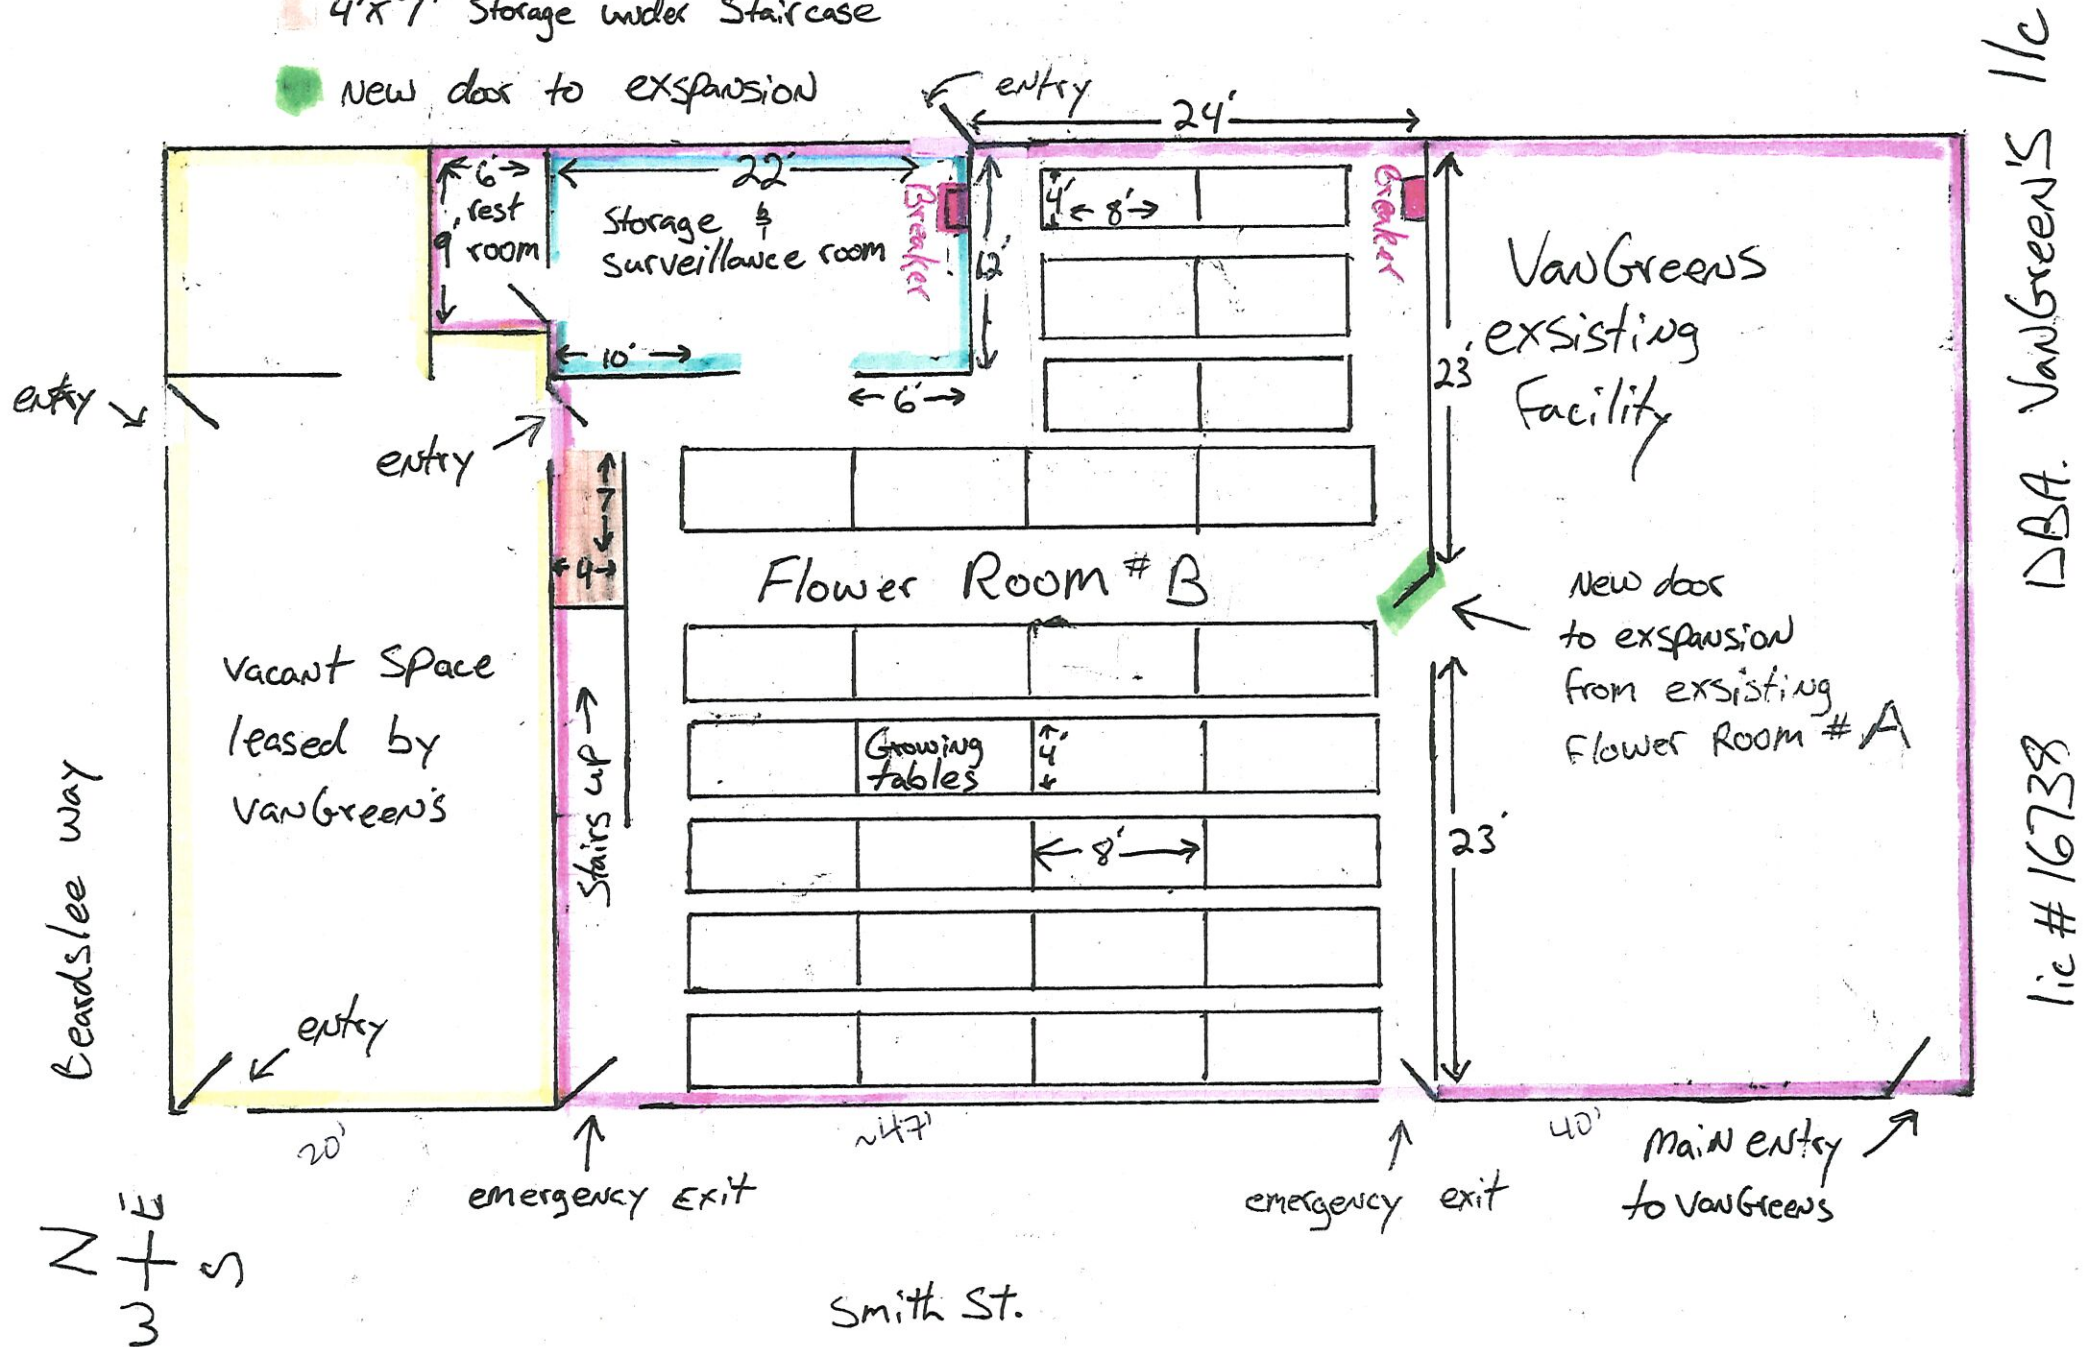 4'x7' Storage under Staircase
New door to exspansion
entry
24'
6'
rest
room
9'
22'
Storage &
Surveillance room
Breaker
12'
4'
8'
Breaker
23'
VanGreens
exsisting
Facility
10'
6'
entry
entry
7
4
Flower Room # B
New door
to exspansion
from exsisting
Flower Room # A
Vacant Space
leased by
VanGreen's
Stairs up
Growing
tables
4'
8'
23'
entry
20'
~47'
40'
emergency Exit
emergency exit
Main entry
to VanGreens
Beardslee way
N
E
S
W
Smith St.
lic # 16738 DBA. VanGreen's llc